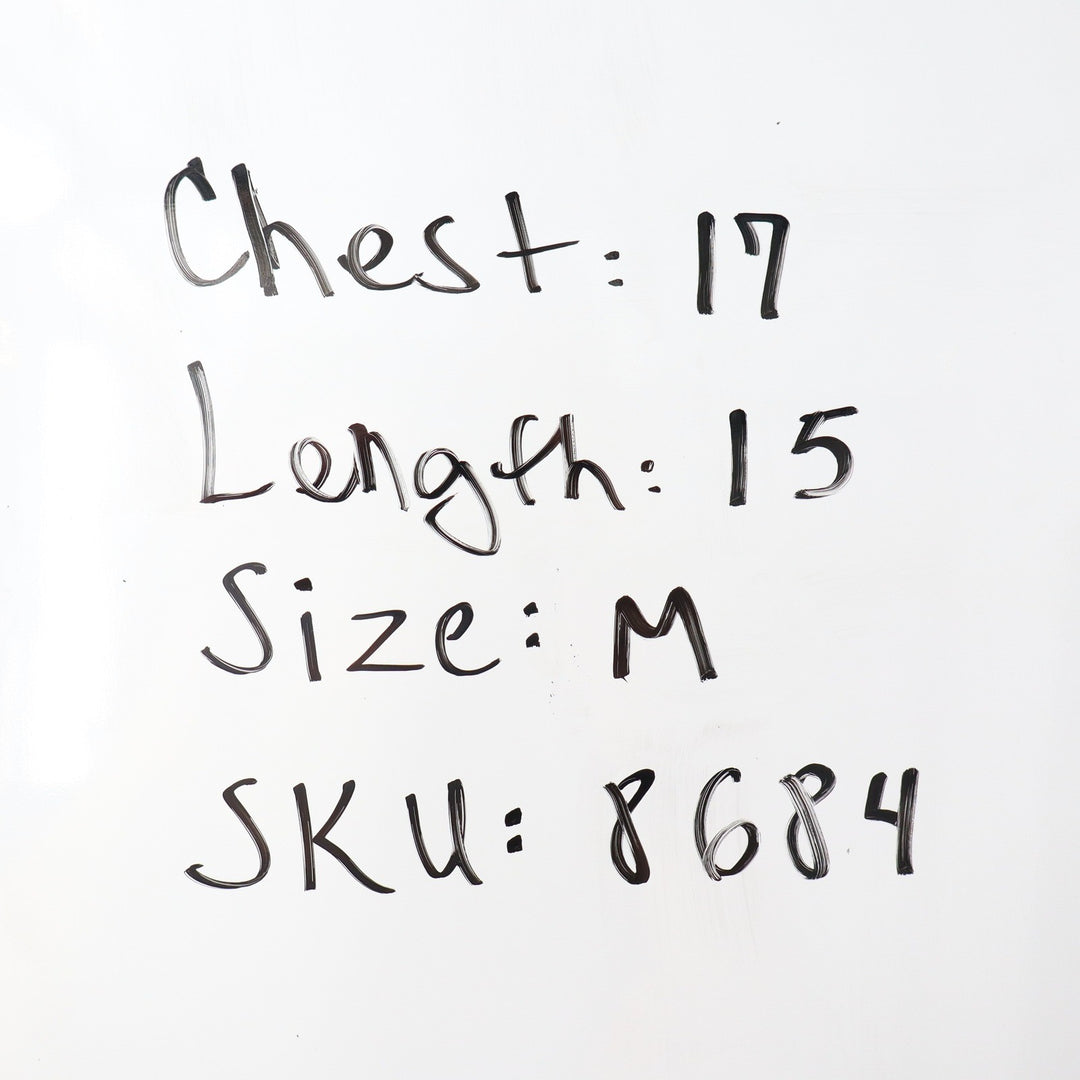 Chest: 17
Length: 15
Size: M
SKU: 8684